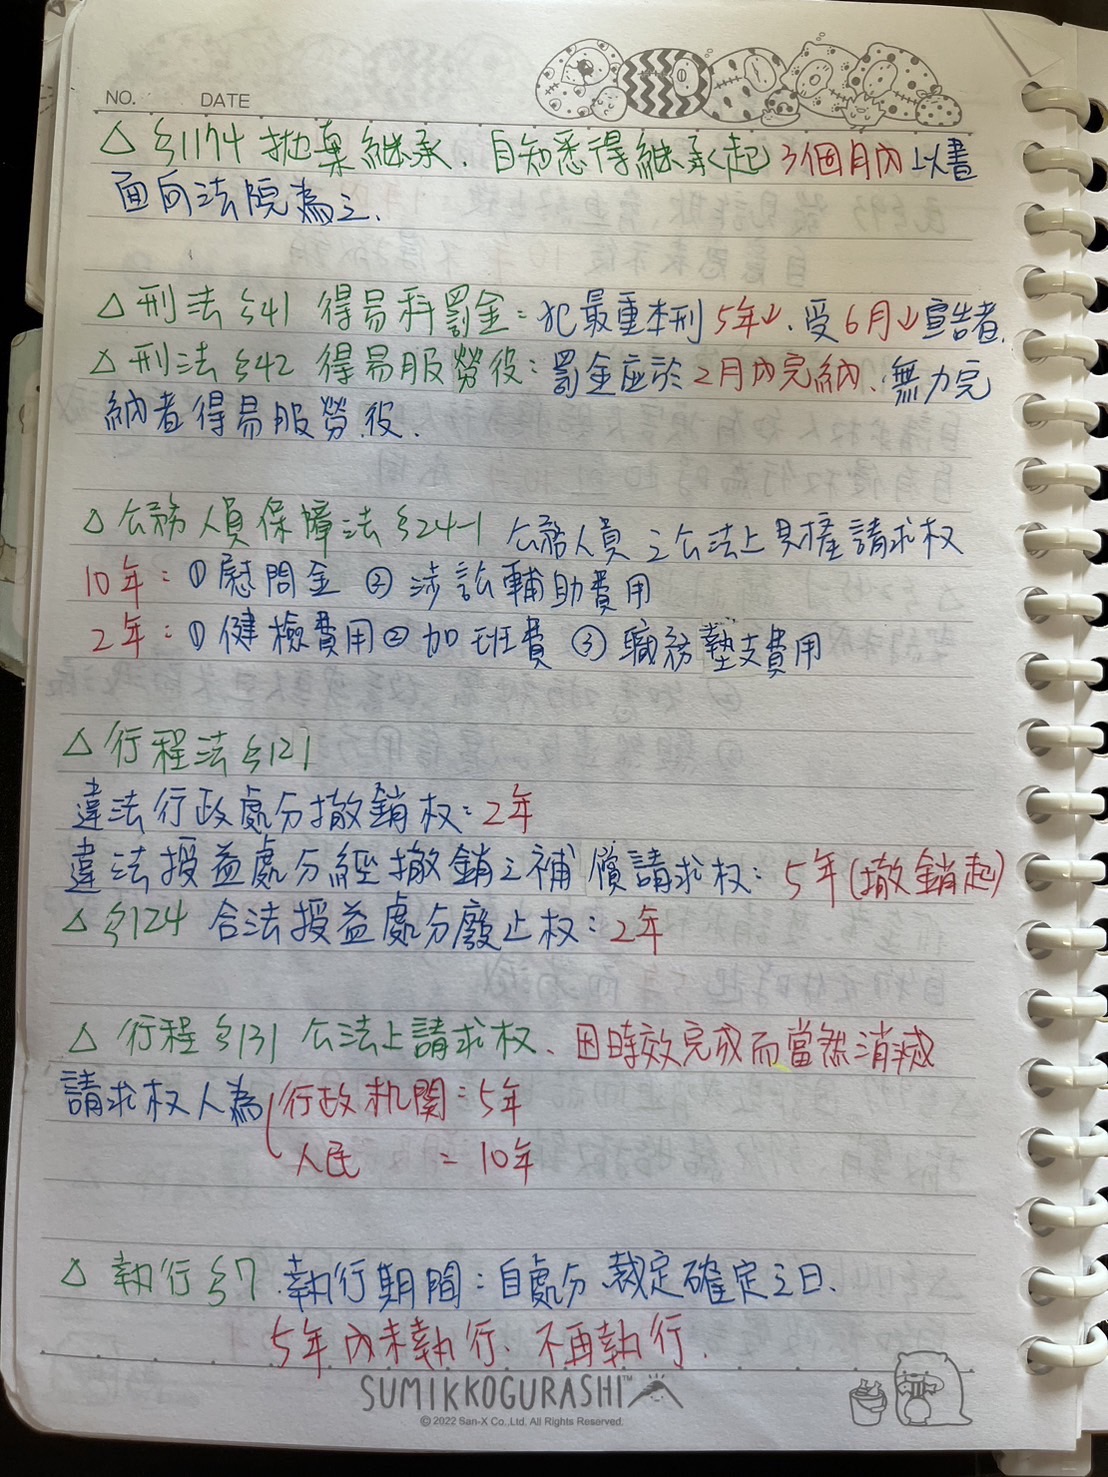 NO. DATE
△ §1174 拋棄繼承、自知悉得繼承起 3個月內 以書
面向法院為之、
△ 刑法 §41 得易科罰金：犯最重本刑 5年↓、受 6月↓ 宣告者、
△ 刑法 §42 得易服勞役：罰金應於 2月內完納、無力完
納者得易服勞役、
△ 公務人員保障法 §24-1 公務人員之公法上財產請求权
10年：① 慰問金 ② 涉訟輔助費用
2年：① 健檢費用 ② 加班費 ③ 職務墊支費用
△ 行程法 §121
違法行政處分撤銷权：2年
違法授益處分經撤銷之補償請求权：5年(撤銷起)
△ §124 合法授益處分廢止权：2年
△ 行程 §131 公法上請求权、因時效完成而當然消滅
請求权人為 行政机関：5年
人民 ＝ 10年
△ 執行 §7 執行期間：自處分、裁定確定之日、
5年內未執行、不再執行、
SUMIKKOGURASHI™
© 2022 San-X Co.,Ltd. All Rights Reserved.